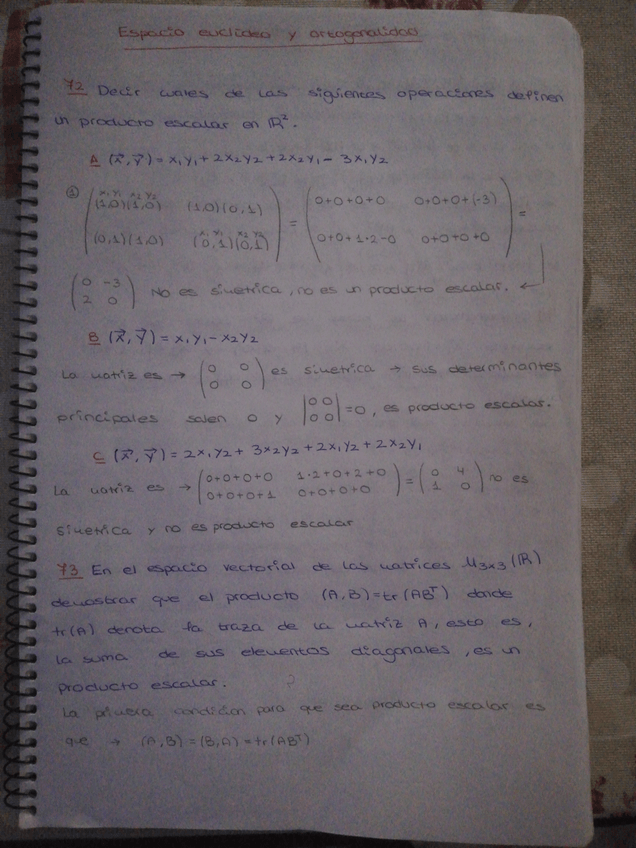 Espacio euclídeo y ortogonalidad
72 Decir cuales de las siguientes operaciones definen
un producto escalar en ℝ².
A (x⃗, y⃗) = x₁y₁ + 2x₂y₂ + 2x₂y₁ - 3x₁y₂
① ( x₁ y₁ x₂ y₂ (1,0)(1,0) (1,0)(0,1) ) = ( 0+0+0+0 0+0+0+(-3) ) =
( (0,1)(1,0) x₁ y₁ x₂ y₂ (0,1)(0,1) ) ( 0+0+1·2-0 0+0+0+0 )
( 0 -3 ) No es simetrica, no es un producto escalar. ←
( 2 0 )
B (x⃗, y⃗) = x₁y₁ - x₂y₂
La matriz es → ( 0 0 / 0 0 ) es simetrica → sus determinantes
principales salen 0 y | 0 0 / 0 0 | = 0, es producto escalar.
C (x⃗, y⃗) = 2x₁y₂ + 3x₂y₂ + 2x₁y₂ + 2x₂y₁
La matriz es → ( 0+0+0+0 1·2+0+2+0 / 0+0+0+1 0+0+0+0 ) = ( 0 4 / 1 0 ) no es
simetrica y no es producto escalar
73 En el espacio vectorial de las matrices M₃ₓ₃(ℝ)
demostrar que el producto (A,B) = tr(ABᵀ) donde
tr(A) denota la traza de la matriz A, esto es,
la suma de sus elementos diagonales, es un
producto escalar. ?
La primera condicion para que sea producto escalar es
que → (A,B) = (B,A) = tr(ABᵀ)